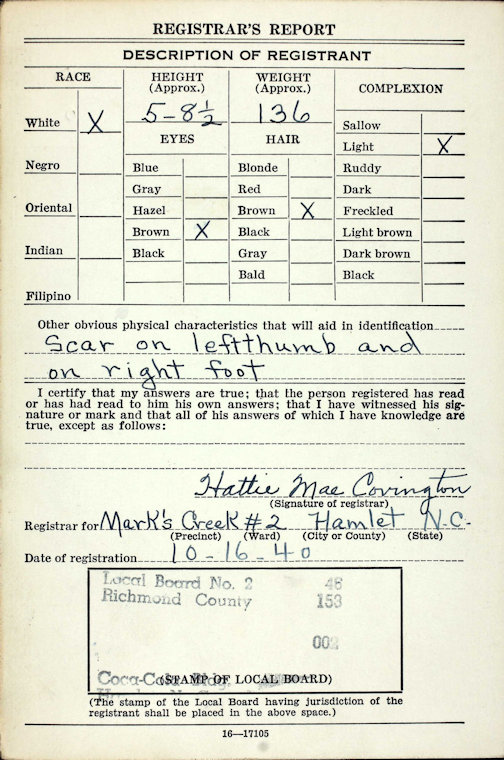 REGISTRAR'S REPORT
DESCRIPTION OF REGISTRANT
RACE
HEIGHT
(Approx.)
WEIGHT
(Approx.)
COMPLEXION
5-8½
136
White X
EYES
HAIR
Sallow
Light X
Negro
Blue
Blonde
Ruddy
Gray
Red
Dark
Oriental
Hazel
Brown X
Freckled
Brown X
Black
Light brown
Indian
Black
Gray
Dark brown
Bald
Black
Filipino
Other obvious physical characteristics that will aid in identification
Scar on left thumb and
on right foot
I certify that my answers are true; that the person registered has read
or has had read to him his own answers; that I have witnessed his sig-
nature or mark and that all of his answers of which I have knowledge are
true, except as follows:
Hattie Mae Covington
(Signature of registrar)
Registrar for Mark's Creek #2 Hamlet N.C.
(Precinct) (Ward) (City or County) (State)
Date of registration 10-16-40
Local Board No. 2 46
Richmond County 153
002
Coca-Cola Bldg.
(STAMP OF LOCAL BOARD)
(The stamp of the Local Board having jurisdiction of the
registrant shall be placed in the above space.)
16—17105